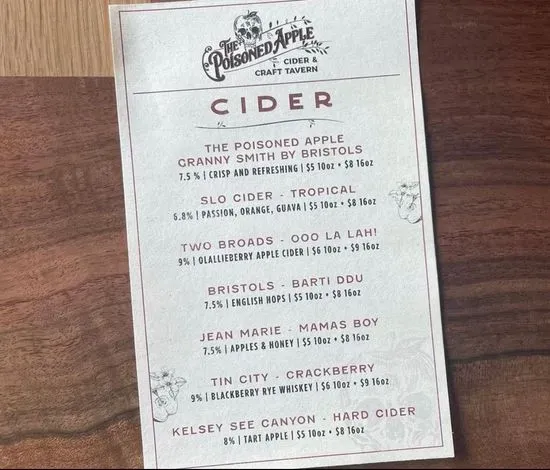 THE
POISONED APPLE
CIDER &
CRAFT TAVERN
CIDER
THE POISONED APPLE
GRANNY SMITH BY BRISTOLS
7.5 % | CRISP AND REFRESHING | $5 10oz • $8 16oz
SLO CIDER - TROPICAL
6.8% | PASSION, ORANGE, GUAVA | $5 10oz • $8 16oz
TWO BROADS - OOO LA LAH!
9% | OLALLIEBERRY APPLE CIDER | $6 10oz • $9 16oz
BRISTOLS - BARTI DDU
7.5% | ENGLISH HOPS | $5 10oz • $8 16oz
JEAN MARIE - MAMAS BOY
7.5% | APPLES & HONEY | $5 10oz • $8 16oz
TIN CITY - CRACKBERRY
9% | BLACKBERRY RYE WHISKEY | $6 10oz • $9 16oz
KELSEY SEE CANYON - HARD CIDER
8% | TART APPLE | $5 10oz • $8 16oz